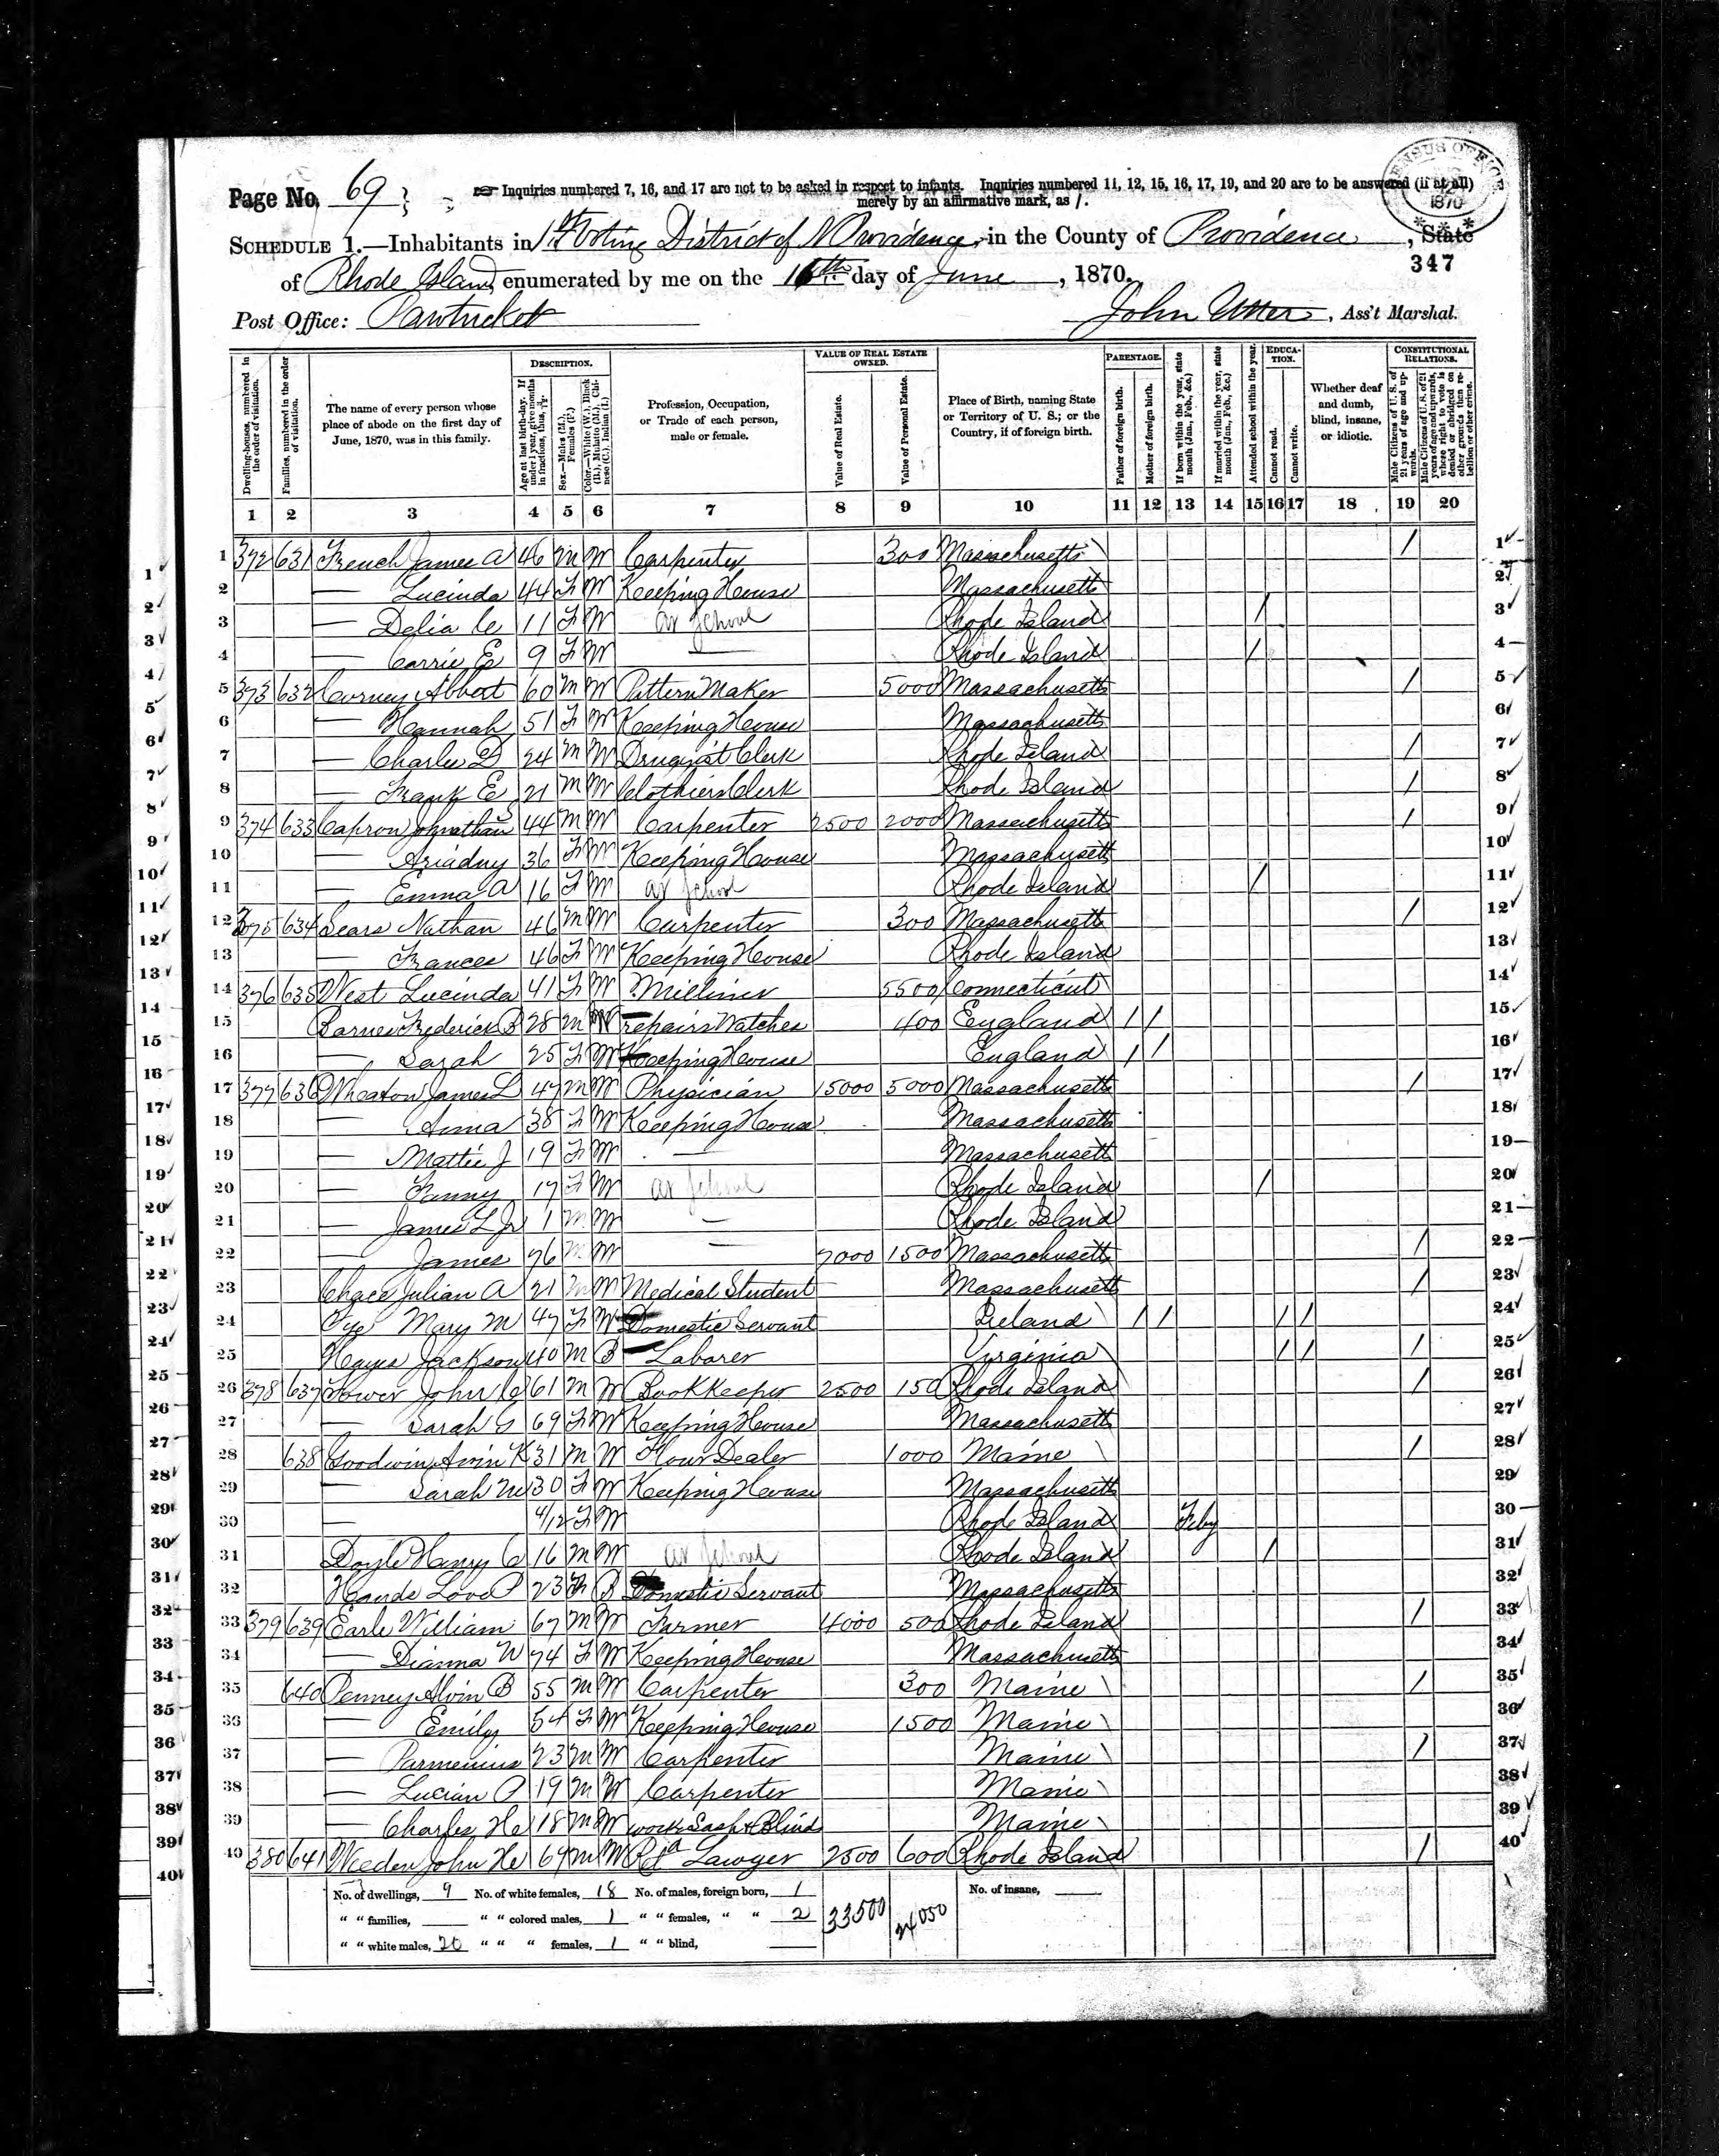 Page No. 69
Inquiries numbered 7, 16, and 17 are not to be asked in respect to infants. Inquiries numbered 11, 12, 15, 16, 17, 19, and 20 are to be answered (if at all)
merely by an affirmative mark, as /.
CENSUS OFFICE 1870
SCHEDULE 1.—Inhabitants in 1st Voting District of N Providence, in the County of Providence, State
347
of Rhode Island, enumerated by me on the 16th day of June, 1870.
Post Office: Pawtucket
John Utter, Ass't Marshal.
Dwelling-houses, numbered in the order of visitation.
Families, numbered in the order of visitation.
The name of every person whose place of abode on the first day of June, 1870, was in this family.
DESCRIPTION.
Age at last birth-day. If under 1 year, give months in fractions, thus, 3/12.
Sex.—Males (M.), Females (F.)
Color.—White (W.), Black (B.), Mulatto (M.), Chinese (C.), Indian (I.)
Profession, Occupation, or Trade of each person, male or female.
VALUE OF REAL ESTATE OWNED.
Value of Real Estate.
Value of Personal Estate.
Place of Birth, naming State or Territory of U. S.; or the Country, if of foreign birth.
PARENTAGE.
Father of foreign birth.
Mother of foreign birth.
If born within the year, state month (Jan., Feb., &c.)
If married within the year, state month (Jan., Feb., &c.)
Attended school within the year.
EDUCATION.
Cannot read.
Cannot write.
Whether deaf and dumb, blind, insane, or idiotic.
CONSTITUTIONAL RELATIONS.
Male Citizens of U. S. of 21 years of age and upwards.
Male Citizens of U. S. of 21 years of age and upwards, whose right to vote is denied or abridged on other grounds than rebellion or other crime.
1 2 3 4 5 6 7 8 9 10 11 12 13 14 15 16 17 18 19 20
1 372 631 French James A 46 M W Carpenter 300 Massachusetts / 1
2 — Lucinda 44 F W Keeping House Massachusetts 2
3 — Delia C 11 F W at School Rhode Island / 3
4 — Carrie E 9 F W — Rhode Island / 4
5 373 632 Albert 60 M W Pattern Maker 5000 Massachusetts / 5
6 — Hannah 51 F W Keeping House Massachusetts 6
7 — Charles D 24 M W Druggist Clerk Rhode Island / 7
8 — Frank E 21 M W Clothiers Clerk Rhode Island / 8
9 374 633 Capron Johnathan S 44 M W Carpenter 2500 2000 Massachusetts / 9
10 — Ariadny 36 F W Keeping House Massachusetts 10
11 — Emma A 16 F W at School Rhode Island / 11
12 375 634 Sears Nathan 46 M W Carpenter 300 Massachusetts / 12
13 — Frances 46 F W Keeping House Rhode Island 13
14 376 635 West Lucinda 41 F W Milliner 5500 Connecticut 14
15 Barnes Frederick B 28 M W repairs Watches 400 England / / 15
16 — Sarah 25 F W Keeping House England / / 16
17 377 636 Wheaton James L 47 M W Physician 15000 5000 Massachusetts / 17
18 — Anna 38 F W Keeping House Massachusetts 18
19 — Mattie J 19 F W — Massachusetts 19
20 — Fanny 17 F W at School Rhode Island / 20
21 — James L Jr 1 M W — Rhode Island 21
22 — James 76 M W — 7000 1500 Massachusetts / 22
23 Chace Julian A 21 M W Medical Student Massachusetts / 23
24 Mary M 47 F W Domestic Servant Ireland / / / / 24
25 Hayes Jackson 40 M B Laborer Virginia / / / 25
26 378 637 John C 61 M W Book Keeper 2500 150 Rhode Island / 26
27 — Sarah G 69 F W Keeping House Massachusetts 27
28 638 Goodwin K 31 M W Flour Dealer 1000 Maine / 28
29 — Sarah M 30 F W Keeping House Massachusetts 29
30 — 4/12 F W Rhode Island Feby 30
31 Doyle Henry C 16 M W at School Rhode Island / 31
32 Love P 23 F B Domestic Servant Massachusetts 32
33 379 639 Earle William 67 M W Farmer 4000 500 Rhode Island / 33
34 — Dianna W 74 F W Keeping House Massachusetts 34
35 640 Penney Alvin B 55 M W Carpenter 300 Maine / 35
36 — Emily 54 F W Keeping House 1500 Maine 36
37 — Parmenius 23 M W Carpenter Maine / 37
38 — Lucian P 19 M W Carpenter Maine 38
39 — Charles H 18 M W works Sash & Blind Maine 39
40 380 641 Weeden John H 69 M W Lawyer 2500 600 Rhode Island / 40
No. of dwellings, 9 No. of white females, 18 No. of males, foreign born, 1 33500 24050 No. of insane,
" " families, " " colored males, 1 " " females, " " 2
" " white males, 20 " " " females, 1 " " blind,